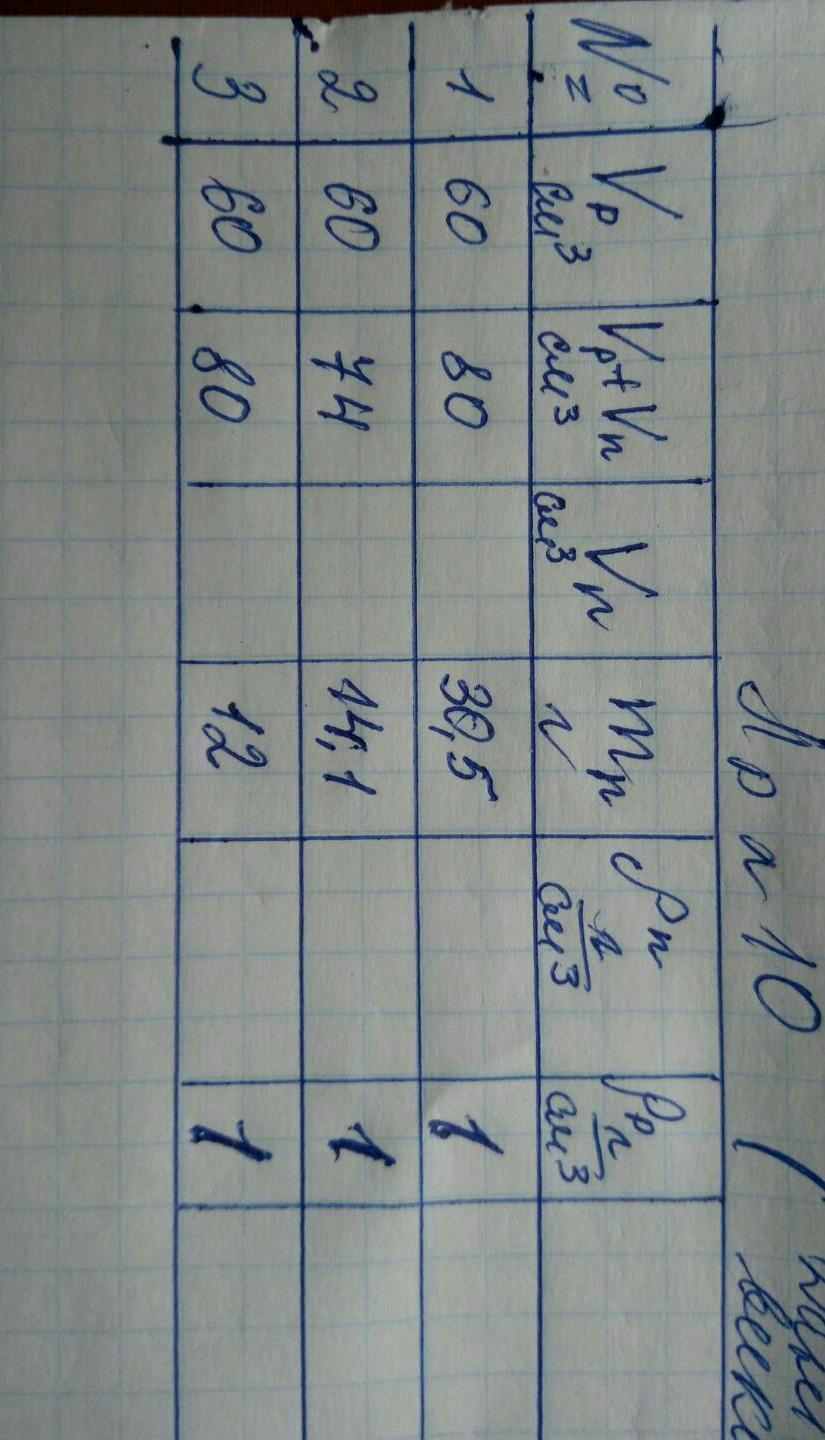 Лр № 10 (
№ Vр см³ Vр+Vп см³ Vп см³ mп г ρп г/см³ ρр г/см³
1 60 80 30,5 1
2 60 74 14,1 1
3 60 80 12 1